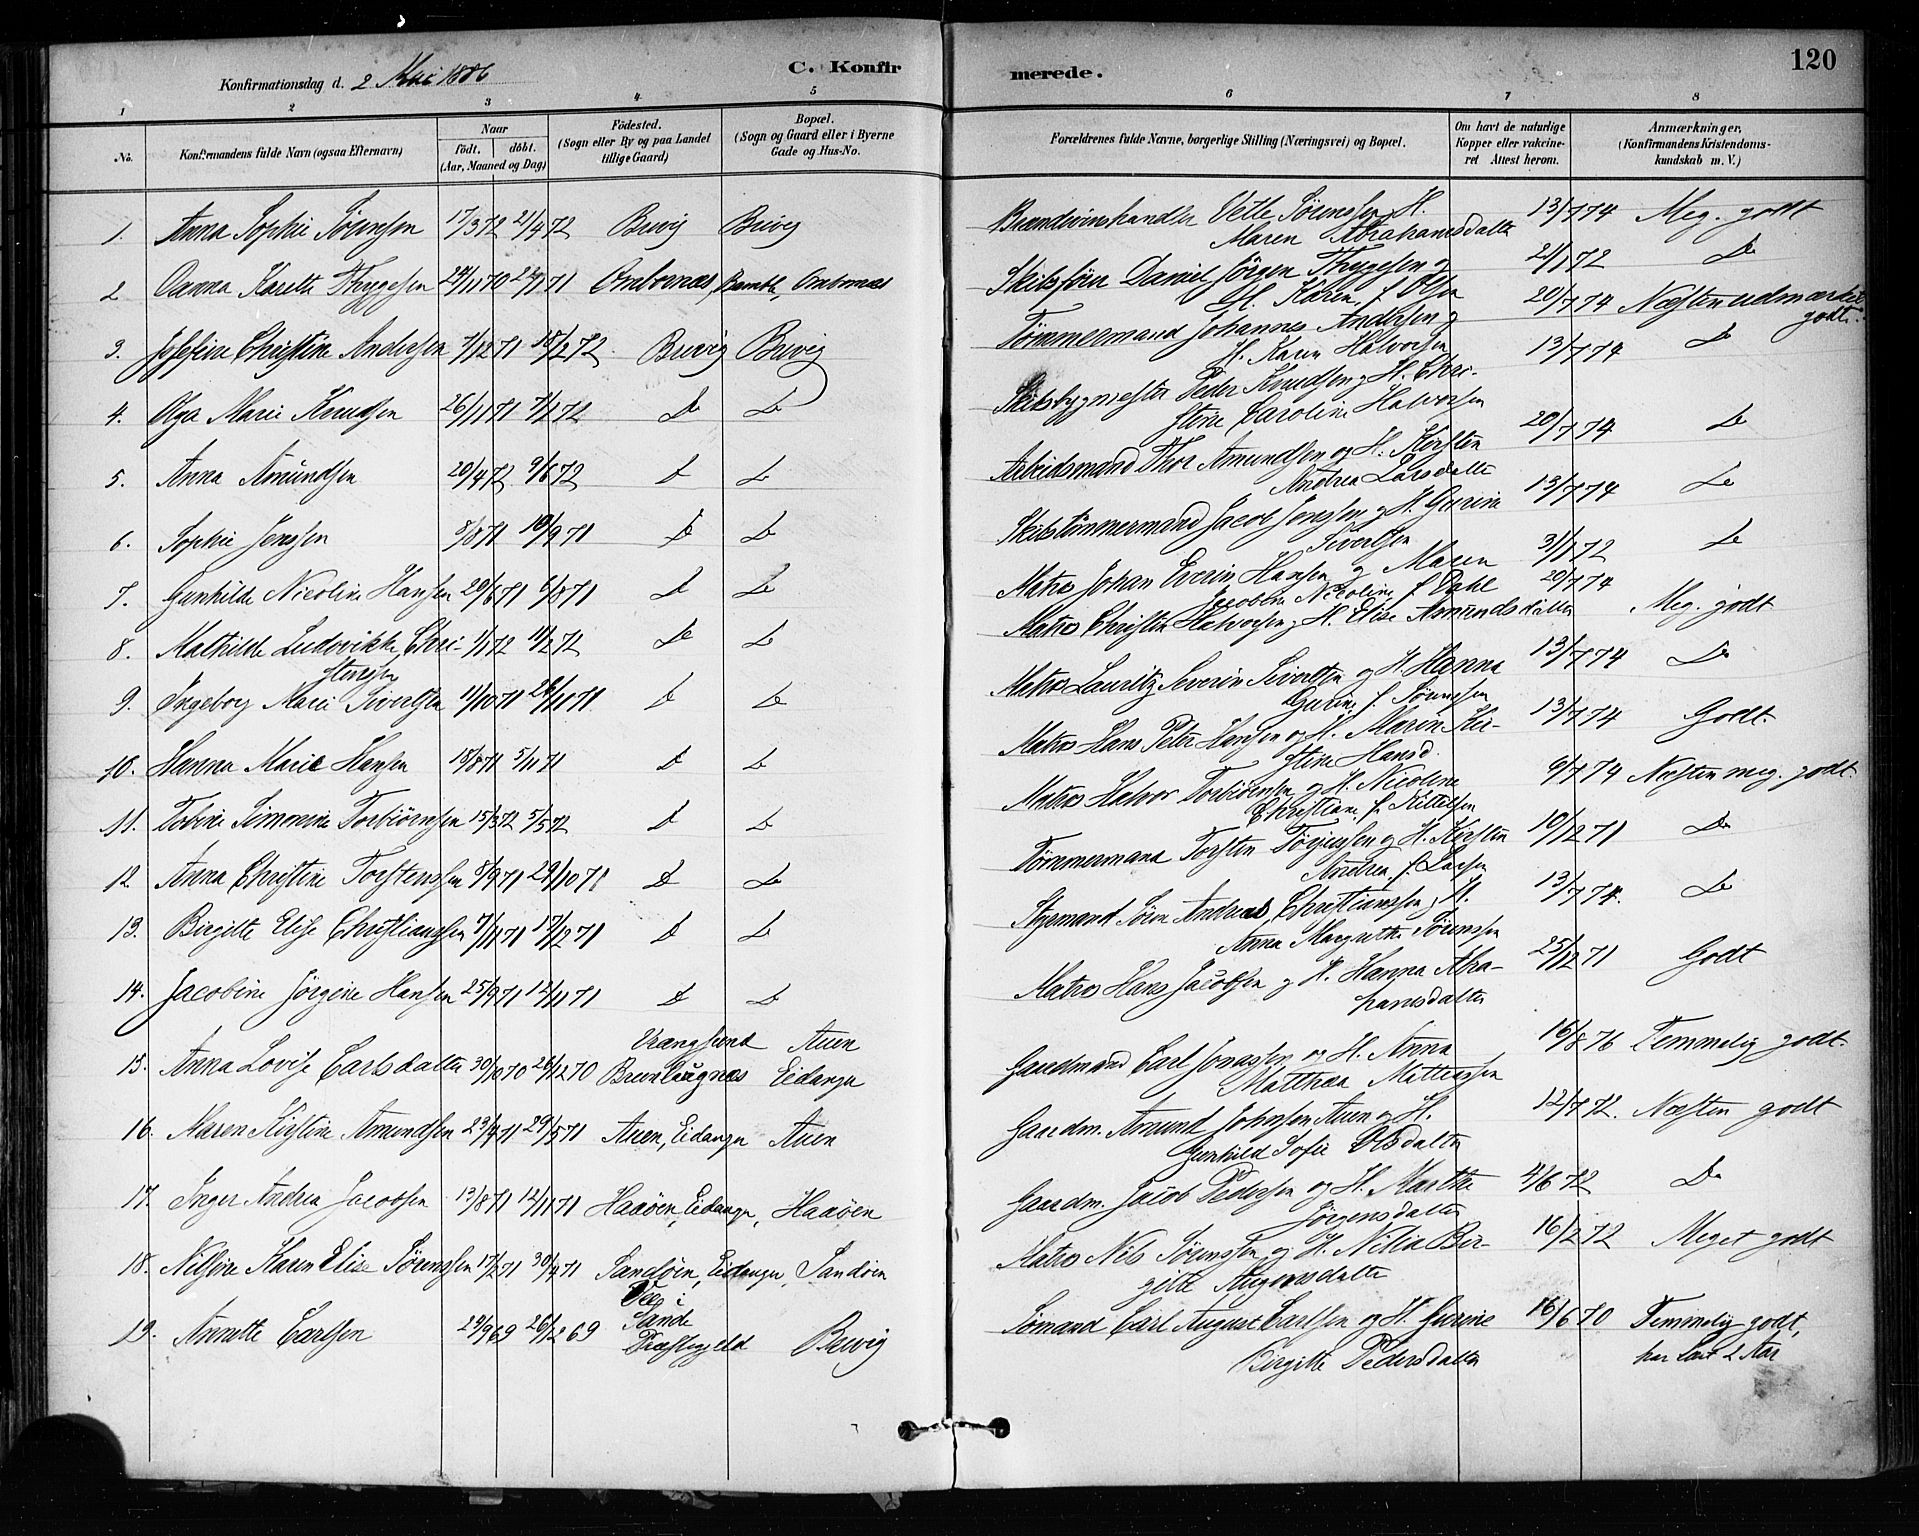 Konfirmationsdag d. 2 Mai 1886
C. Konfir
merede.
120
1 2 3 4 5 6 7 8
No.
Konfirmandens fulde Navn (ogsaa Efternavn)
Naar
födt. döbt.
(Aar, Maaned og Dag)
Födested.
(Sogn eller By og paa Landet
tillige Gaard)
Bopæl.
(Sogn og Gaard eller i Byerne
Gade og Hus-No.
Forældrenes fulde Navne, borgerlige Stilling (Næringsvei) og Bopæl.
Om havt de naturlige
Kopper eller vakcine-
ret Attest herom.
Anmærkninger,
(Konfirmandens Kristendoms-
kundskab m. V.)
1. Anna Sophie Sørensen 17/3 72 21/4 72 Brevig Brevig
Brændevinshandler Vetle Sørenssen, H.
Maren Abrahamsdatter
13/7 74 Meg. godt
2 Karetta Thygesen 24/11 70 Ombornæs, Bamble, Ombornæs
Skibsfører Daniel Jørgen Thygesen og
H. Karen, f. Olsen
2/1 72 Do
3. Josefine Christine Andersen 7/12 71 18/2 72 Brevig Brevig
Tømmermand Johannes Andersen og
H. Karen Halvorsen
20/7 74 Næsten udmærket
godt.
4. Olga Marie Knudsen 26/11 71 7/1 72 Do Do
Skibsbygmester Peder Knudsen og H. Chri-
stine Caroline Halvorsen
13/7 74 Do
5. Anna Amundsen 20/4 72 9/6 72 Do Do
Arbeidsmand Thor Amundsen og H. Kirstin
Andrea Larsdatter
20/7 74 Do
6. Sophie Jensen 8/8 71 10/9 71 Do Do
Skibstømmermand Jacob Jenssen og H. Gurine
Sivertsen
13/7 74 Do
7. Gunhilde Nicoline Hansen 20/6 71 6/8 71 Do Do
Matros Johan Everin Hansen og Maren
Jacobine Nicoline f. Dahl
31/1 72 Do
8. Mathilde Ludovikke Chri-
stensen 1/1 72 11/2 72 Do Do
Matros Christen Halvorsen og H. Elise Amundsdatter
20/7 74 Meg. godt
9. Ingeborg Marie Sivertsen 11/10 71 26/11 71 Do Do
Matros Lauritz Severin Sivertsen og H. Hanna
Gurine f. Sørensen
13/7 74 Do
10. Hanna Marie Hansen 18/8 71 5/11 71 Do Do
Matros Hans Peter Hansen og H. Maren Kir-
stine Hansd.
13/7 74 Godt.
11. Simonine Torbiørnsen 15/3 72 5/5 72 Do Do
Matros Halvor Torbiørnsen og H. Nicoline
Christiane, f. Kittelsen
9/7 74 Næsten meg. godt.
12. Anna Christine Torstenssen 8/9 71 29/10 71 Do Do
Tømmermand Torsten Torjussen og H. Kirstin
Andrea, f. Larsen
10/12 71 Do
13. Birgitte Elise Christiansen 7/11 71 17/12 71 Do Do
Styrmand Søren Andreas Christianssen og H.
Anna Margrethe Sørensen
13/7 74. Do
14. Jacobine Jørgine Hansen 25/9 71 12/11 71 Do Do
Matros Hans Jacobsen og H. Hanna Abra-
hamsdatter
25/12 71 Godt
15. Anna Lovise Carlsdatter 30/10 70 26/12 70 Vrangsund
Brunlaugnæs Auen
Eidanger
Gaardmand Carl Jonassen og H. Anna
Matthea Mattiassen
16/8 76 Temmelig godt.
16. Maren Kirstine Amundsen 23/4 71 29/5 71 Auen, Eidanger Auen
Gaardm. Amund Johnsen Auen og H.
Gunhild Sofie Olsdatter
12/7 72. Næsten godt
17. Inger Andrea Jacobsen 13/8 71 12/11 71 Haaøen, Eidanger, Haaøen
Gaardm. Jacob Pedersen og H. Marthe
Jørgensdatter
4/6 72 Do
18. Nilsine Karen Elise Sørenssen 17/2 71 30/4 71 Sandøen, Eidanger, Sandøen
Matros Nils Sørenssen og H. Nilia Bir-
gitte
16/2 72 Meget godt
19. Annette Carlsen 24/9 69 26/12 69 i
Sande
Præstegjeld Brevig
Sømand Carl August Carlsen og H. Gurine
Birgitte Pedersdatter
16/6 70 Temmelig godt,
har læst 2 Aar